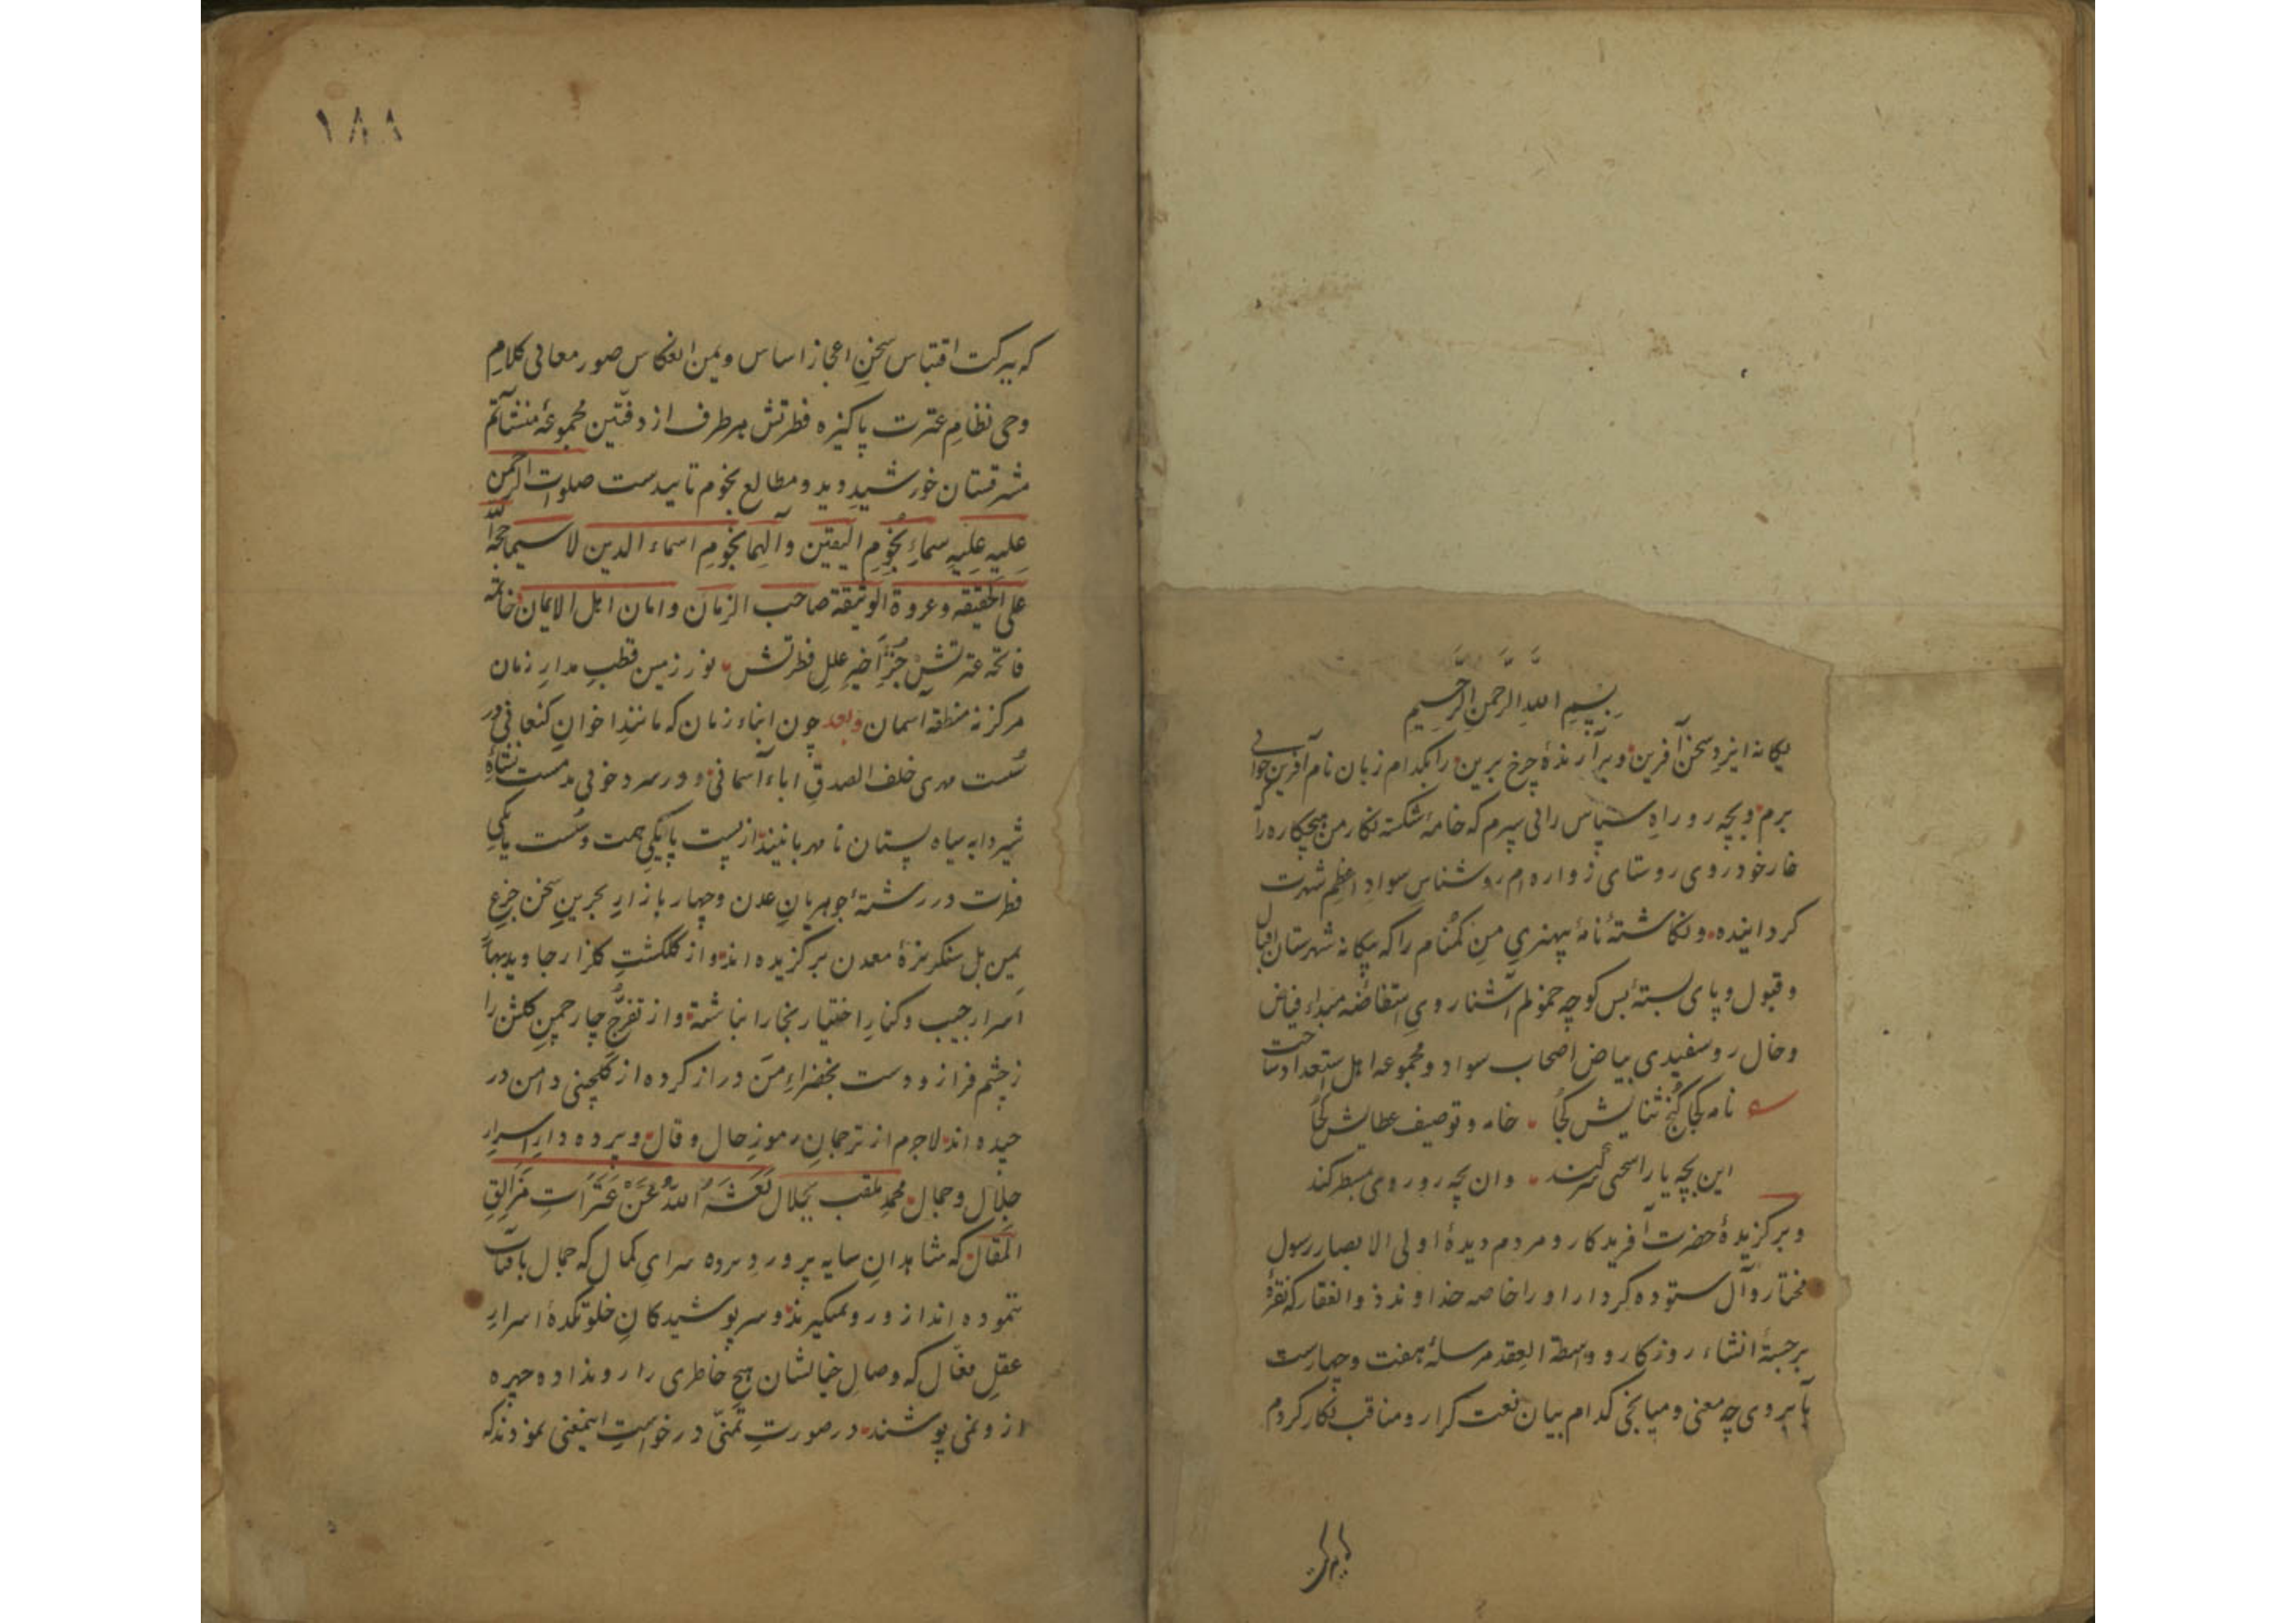 بسم الله الرحمن الرحیم
یکانه ایزد سخن آفرین و برآرندهٔ چرخ برین را بکدام زبان نام آفرین خوانی
برم و بچه رو راه سپاس رانی سپرم که خامهٔ شکسته نکار من هیچکاره را
خار خود روی روستای زواره ام روشناس سواد اعظم شهرت
کردانیده و نکاشتهٔ نامهٔ بیهنری من کمنام را که بیکانه شهرستان اقبال
و قبول و پای بستهٔ بس کوچه خمولم آشنا روی استفاضهٔ مبداء فیاض
و خال رو سفیدی بیاض اصحاب سواد و مجموعه اهل استعداد ساخت
نامه کجا کنج ثنایش کجا خامه و توصیف عطایش کجا
این بچه یارا سخنی سر کند وان بچه رو روی مسطر کند
و برکزیدهٔ حضرت آفریدکار و مردم دیدهٔ اولی الابصار رسول
مختار و آل ستوده کردار او را خاصه خداوند ذوالفقار که نقرهٔ
برجستهٔ انشاء روزکار و واسطة العقد مرسلهٔ هفت و چهارست
بآبروی چه معنی و میانجی کدام بیان نعت کزار و مناقب نکار کردم
۱۸۸
که ببرکت اقتباس سخن اعجاز اساس و یمن انعکاس صور معانی کلام
وحی نظام عترت پاکیزه فطرتش هر طرف از دفتین مجموعهٔ منشآتم
مشرقستان خورشید دید و مطالع نجوم تاییدست صلوات الرحمن
علیه علیه سماء نجوم الیقین و آلهما نجوم اسماء الدین لاسیما حجة الله
علی الحقیقه و عروة الوثیقة صاحب الزمان و امان اهل الایمان خاتمه
فاتحه عترتش جزء اخیر علل فطرتش نور زمین قطب مدار زمان
مرکز نه منطقه آسمان وبعد چون ابناء زمان که مانند اخوان کنعانی در
سست مهری خلف الصدق اباء آسمانی و در سرد خونی بدمست نشاهٔ
شیر دایه سیاه پستان نامهربانیند از پست پایکی همت و سست یایکی
فطرت در رشتهٔ جوهریان عدن و چهار بازار بحرین سخن جزع
یمین بل سنکریزهٔ معدن برکزیده اند و از کلکشت کلزار جاوید بهار
اسرار جیب و کنار اختیار بخار انباشته و از تفرج چار چمن کلشن را
ز چشم فراز و دست بخضراء من دراز کرده از کلچینی دامن در
چیده اند لاجرم از ترجمان رموز حال و قال و پرده دار اسرار
جلال و جمال محمد ملقب بجلال نعشه الله عن عثرات مزالق
المقال که شاهدان سایه پرورد پرده سرای کمال که جمال بآفتاب
ننموده اند از و رو نمیکیرند و سر پوشیدکان خلوتکدهٔ اسرار
عقل فعال که وصال خیالشان هیچ خاطری را رو نداده چهره
از و نمی پوشند در صورت تمنی درخواست اینمعنی نمودند که